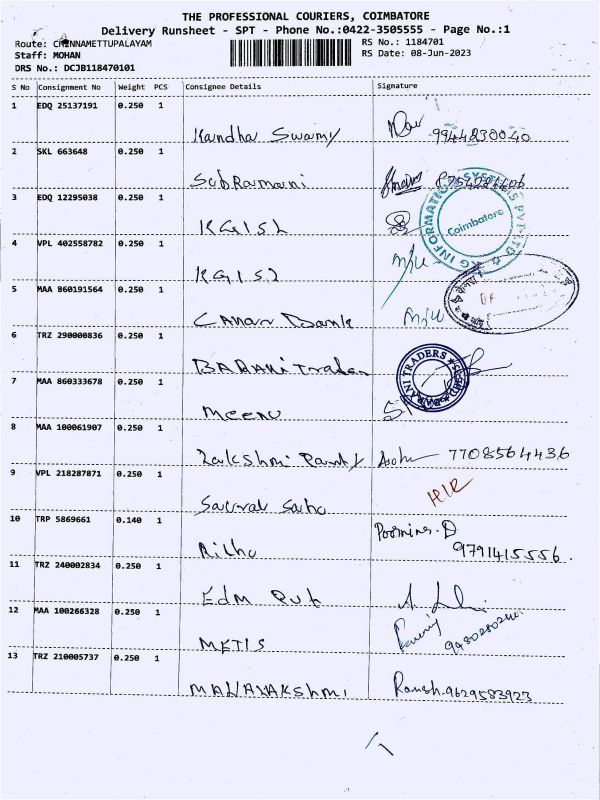 THE PROFESSIONAL COURIERS, COIMBATORE
Delivery Runsheet - SPT - Phone No.:0422-3505555 - Page No.:1
Route: CHINNAMETTUPALAYAM
RS No.: 1184701
Staff: MOHAN
RS Date: 08-Jun-2023
DRS No.: DCJB118470101
S No Consignment No Weight PCS Consignee Details Signature
1 EDQ 25137191 0.250 1
Kandha Swamy 9944830040
2 SKL 663648 0.250 1
SubRamani
3 EDQ 12295038 0.250 1
KGISL
KG INFORMATION SYSTEMS PVT LTD
Coimbatore
4 VPL 402558782 0.250 1
KGISL
5 MAA 860191564 0.250 1
Bank
6 TRZ 290000836 0.250 1
BARANI Traders
BARANI TRADERS
7 MAA 860333678 0.250 1
Meenu
8 MAA 100061907 0.250 1
7708564436
9 VPL 218287871 0.250 1
10 TRP 5869661 0.140 1
9791415556.
11 TRZ 240002834 0.250 1
12 MAA 100266328 0.250 1
METIS
13 TRZ 210005737 0.250 1
Ramesh.9629583923